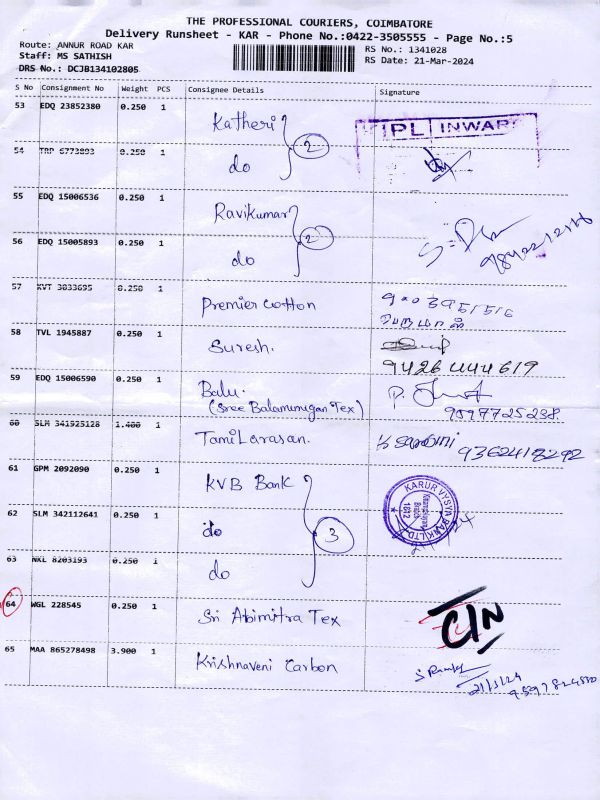 THE PROFESSIONAL COURIERS, COIMBATORE
Delivery Runsheet - KAR - Phone No.:0422-3505555 - Page No.:5
Route: ANNUR ROAD KAR
RS No.: 1341028
Staff: MS SATHISH
RS Date: 21-Mar-2024
DRS No.: DCJB134102805
S No Consignment No Weight PCS Consignee Details Signature
53 EDQ 23852380 0.250 1 Katheri
2
IPL INWAR
54 TRP 6773893 0.250 1 do
55 EDQ 15006536 0.250 1 Ravikumar
2
56 EDQ 15005893 0.250 1 do
57 KVT 3033695 0.250 1 Premier Cotton
9003951516
பெருமாள்
58 TVL 1945887 0.250 1 Suresh.
9426444619
59 EDQ 15006590 0.250 1 Balu.
(Sree Balamurugan Tex)
9597725238
60 SLM 341925128 1.480 1 Tamilarasan.
9362418292
61 GPM 2092090 0.250 1 KVB Bank
KARUR VYSYA BANK LTD
62 SLM 342112641 0.250 1 do
3
63 NKL 8203193 0.250 1 do
64 WGL 228545 0.250 1 Sri Abimitra Tex
C/N
65 MAA 865278498 3.900 1 Krishnaveni Carbon
21/3/24